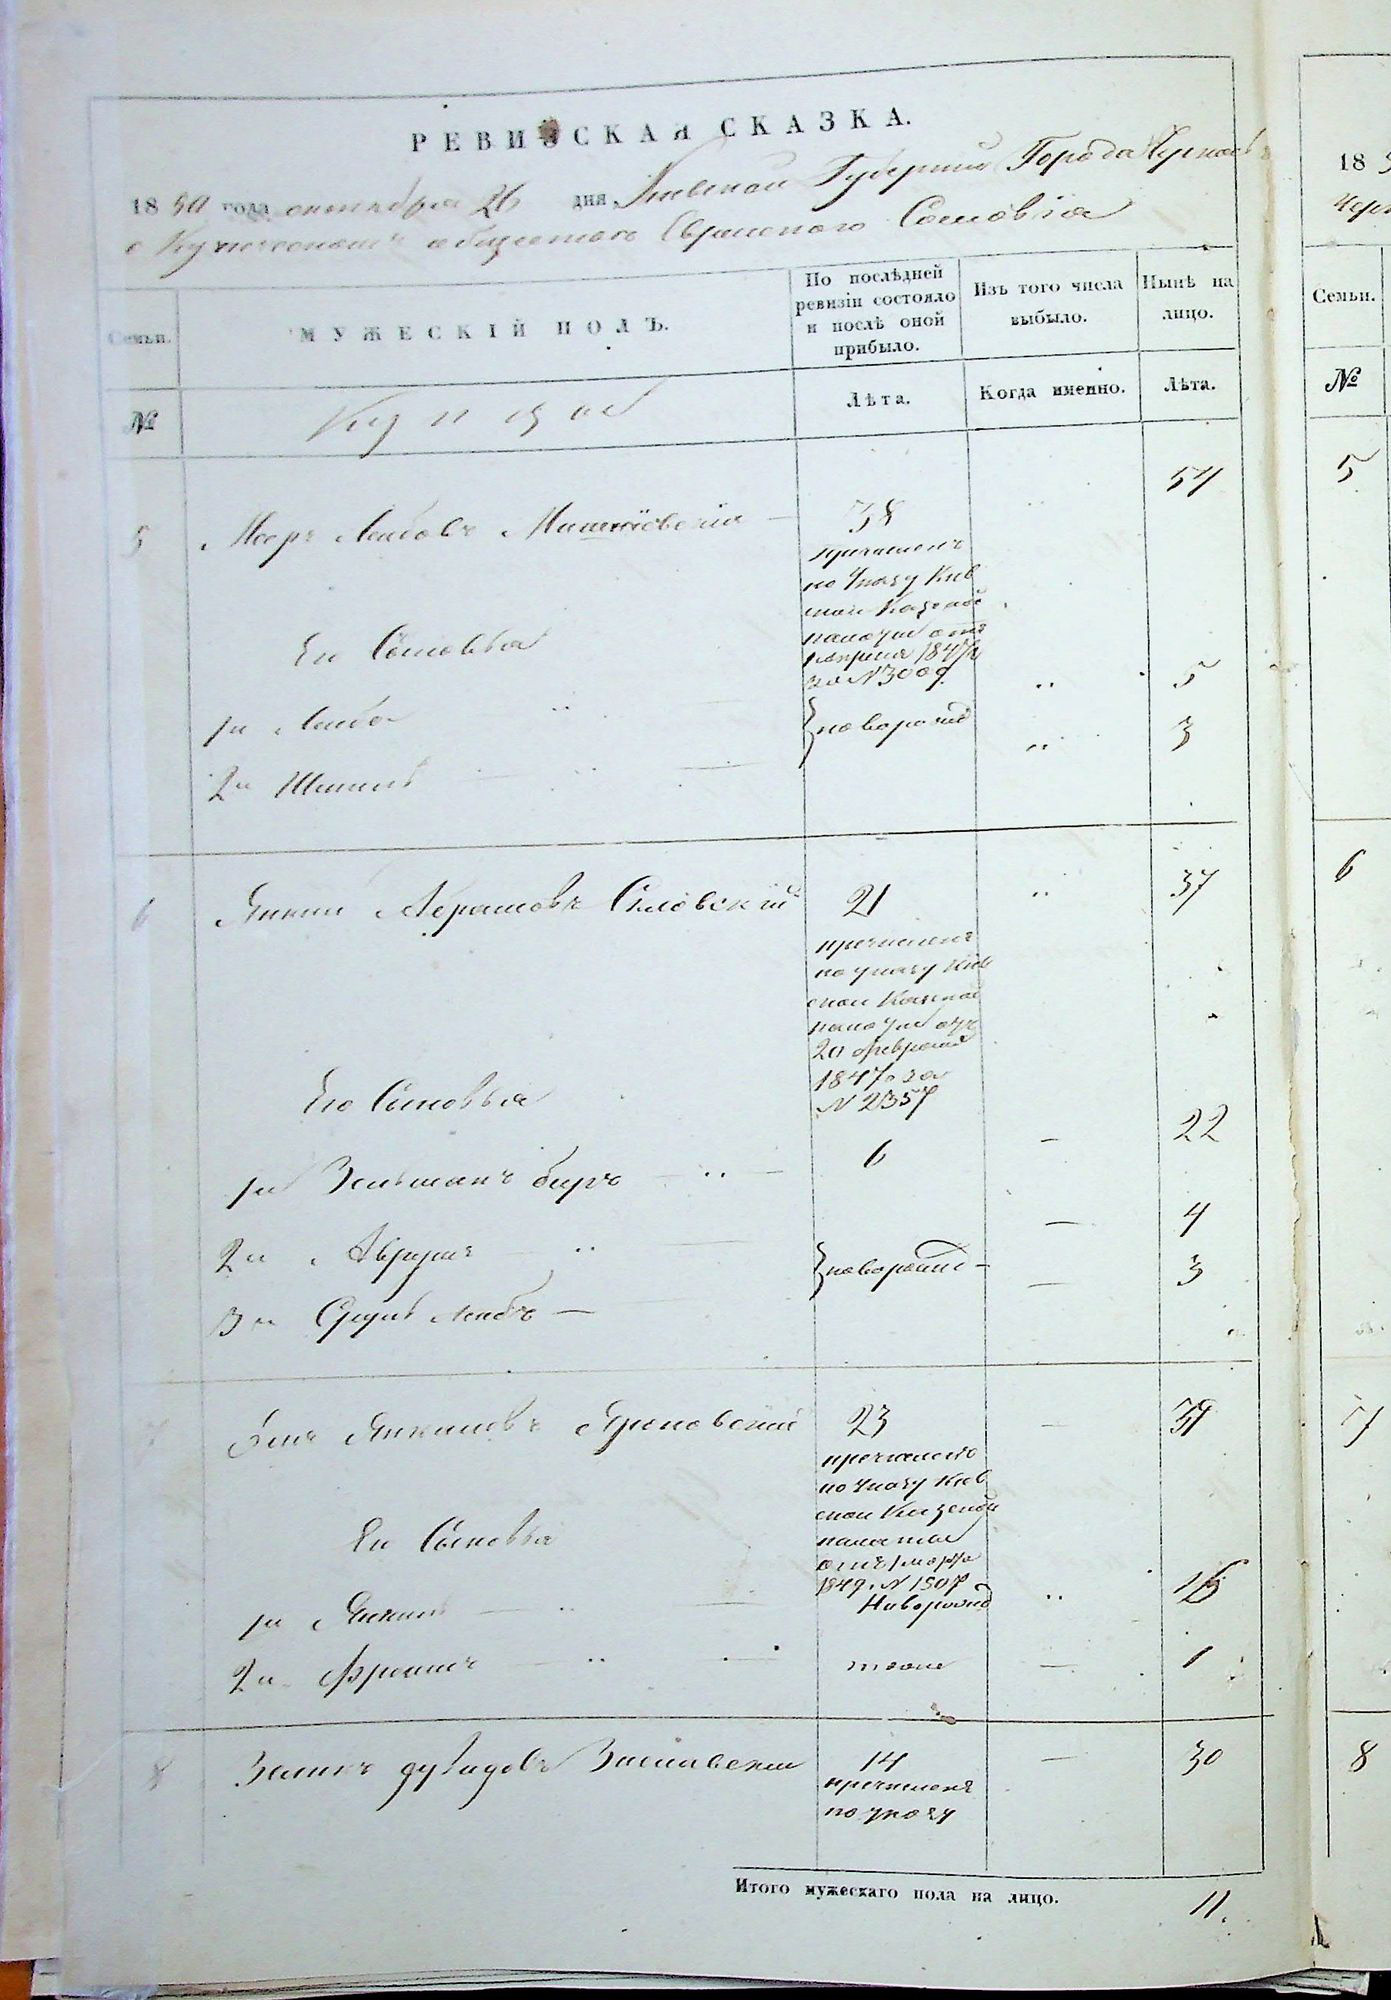 РЕВИЗСКАЯ СКАЗКА.
18 50 года октября 26 дня Киевской Губернии Города Черкасъ
о Купеческомъ обществе Еврейского Сословія
Семьи.
МУЖЕСКІЙ ПОЛЪ.
По послѣдней ревизіи состояло и послѣ оной прибыло.
Изъ того числа выбыло.
Нынѣ на лицо.
№
Лѣта.
Когда именно.
Лѣта.
5 Мееръ Лейбовъ 38 54
причисленъ
по Указу Киев
ской Казеной
палаты отъ
1847
за № 3009
Его Сыновья
1й Лейба новорожд 5
2й 3
6 Янкель Абрамовъ 21 37
причисленъ
по указу Кіев
ской Казеной
палаты отъ
20 февраля
1847 за
№ 2357
Его Сыновья
1й Зельманъ беръ 6 22
2й Аврумъ новорожд 4
3й Сруль Лейбъ 3
7 Янкелевъ 23 39
причисленъ
по Указу Киев
ской Казеной
палаты
отъ 1 марта
1849 № 1507
Его Сыновья
1й Янкель Новорожд
2й Афроимъ тоже 1
8 Зеликъ Дувидовъ Заславский 14 30
причисленъ
по указу
Итого мужескаго пола на лицо. 11.
18 5
Черк
Семьи.
№
5
6
7
8